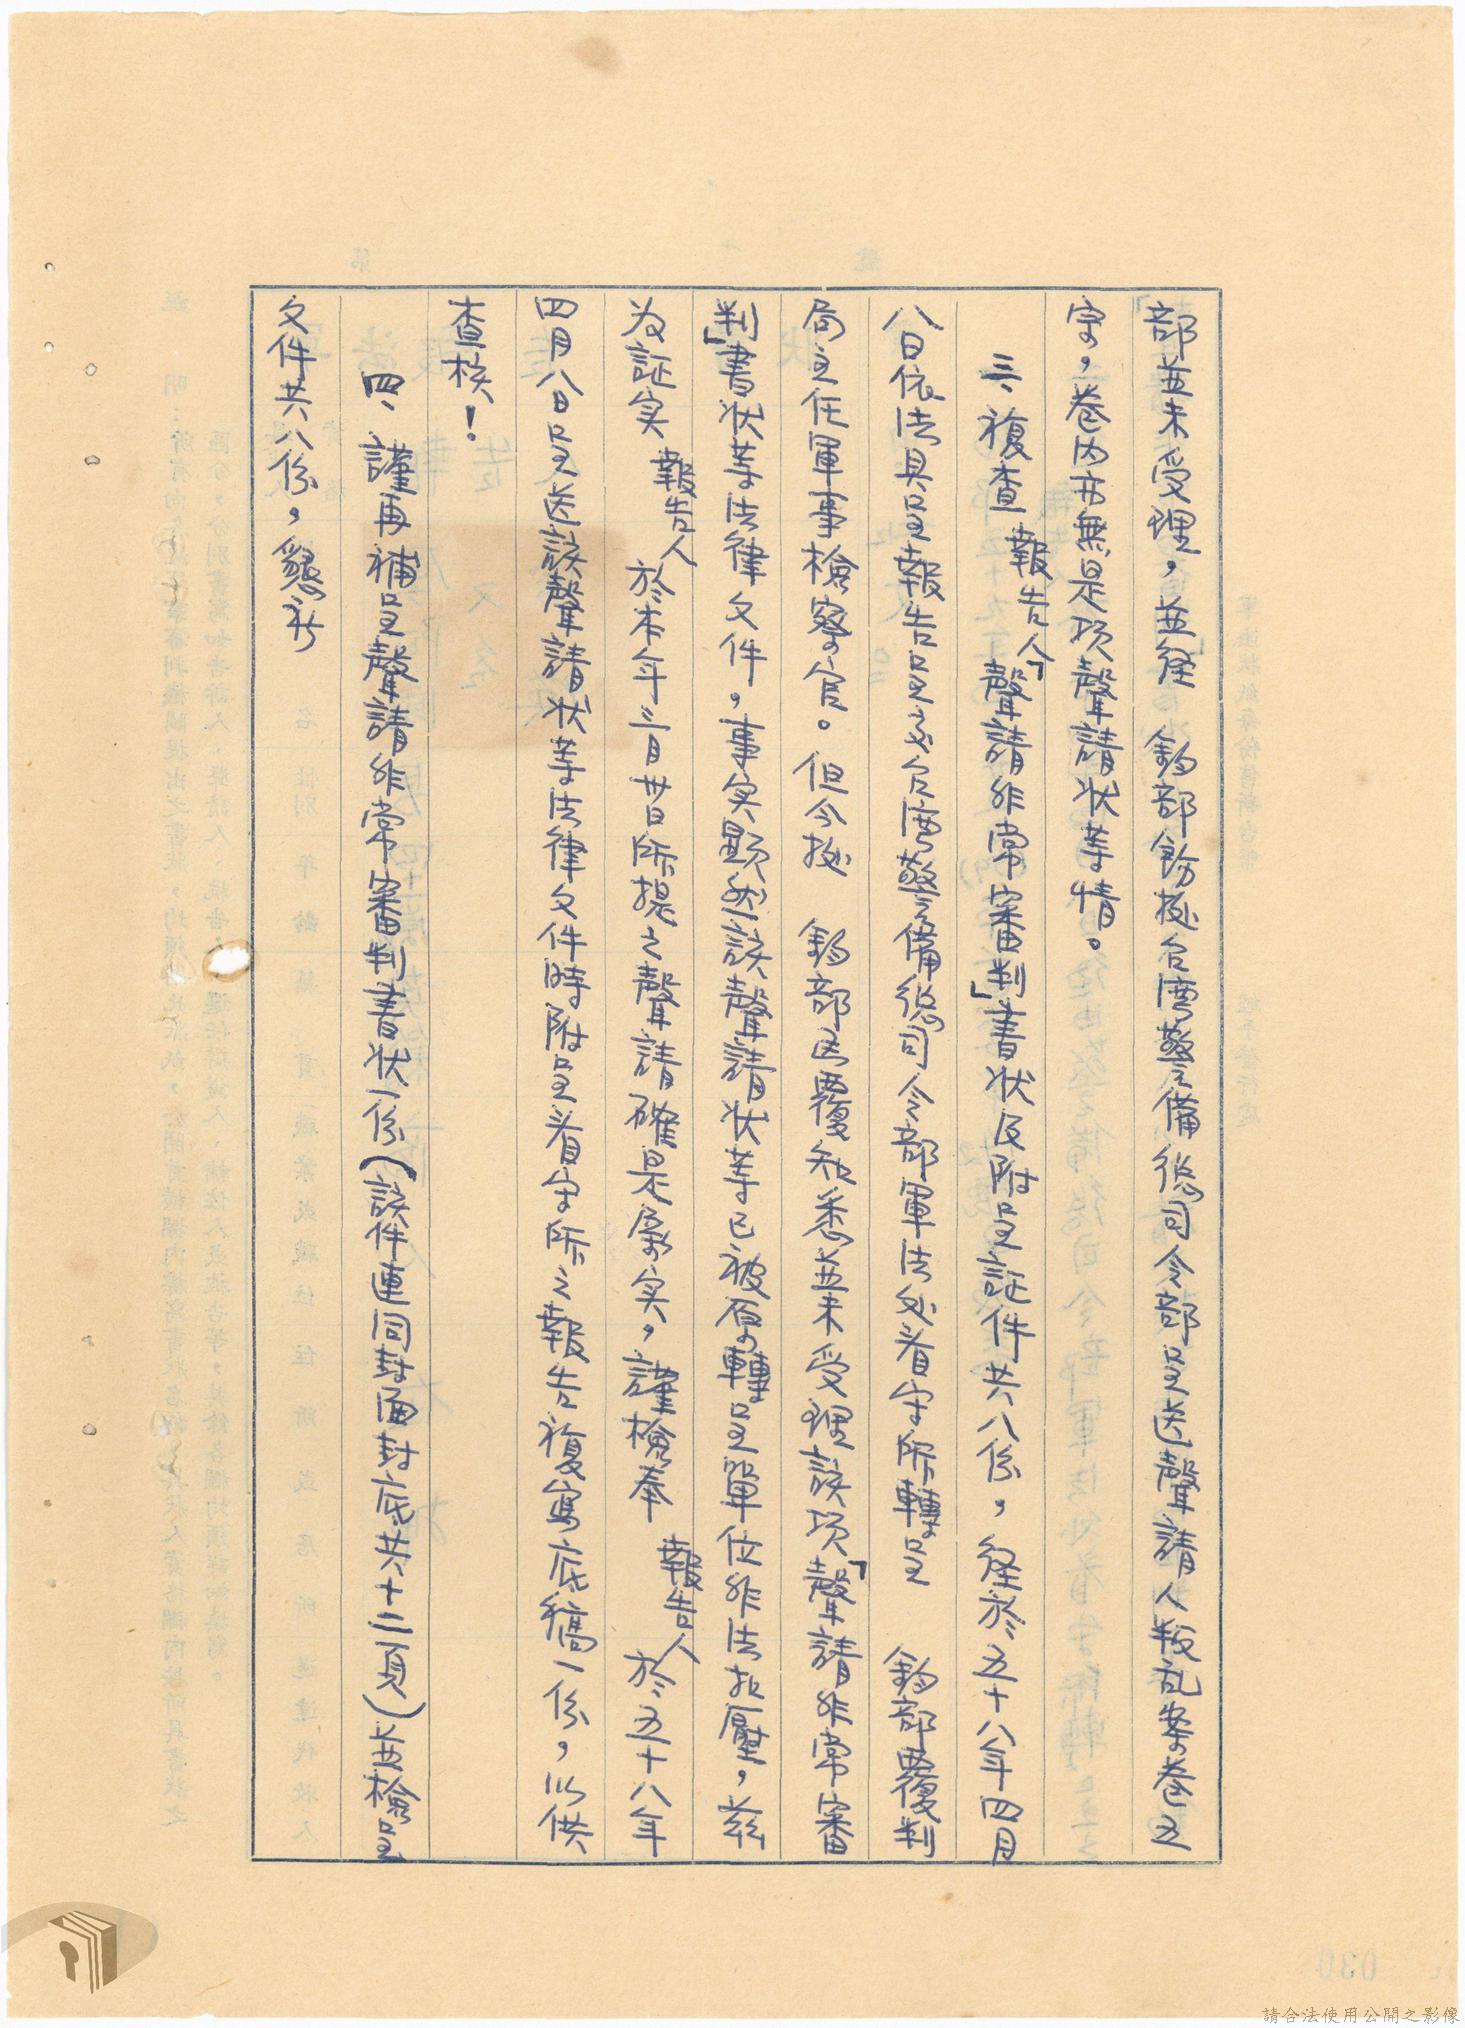 部並未受理，並経　鈞部飭据台湾警备總司令部呈送聲請人叛乱案卷五
宗，卷内亦無是項聲請状等情。
三、複查報告人「聲請非常審判」書状及附呈証件共八份，経於五十八年四月
八日依法具呈報告呈交台湾警备總司令部軍法处看守所轉呈　鈞部覆判
局主任軍事檢察官。但今据　鈞部函覆知悉並未受理該項「聲請非常審
判」書状等法律文件，事实顕然該聲請状等已被原轉呈單位非法扣壓，兹
为証实　報告人於本年三月廿日所提之聲請確是象实，謹檢奉　報告人於五十八年
四月八日呈送該聲請状等法律文件時附呈看守所之報告複寫底稿一份，以供
查核！
四、謹再補呈聲請非常審判書状一份（該件連同封面封底共十二頁）並檢呈
文件共八份，懇祈
請合法使用公開之影像